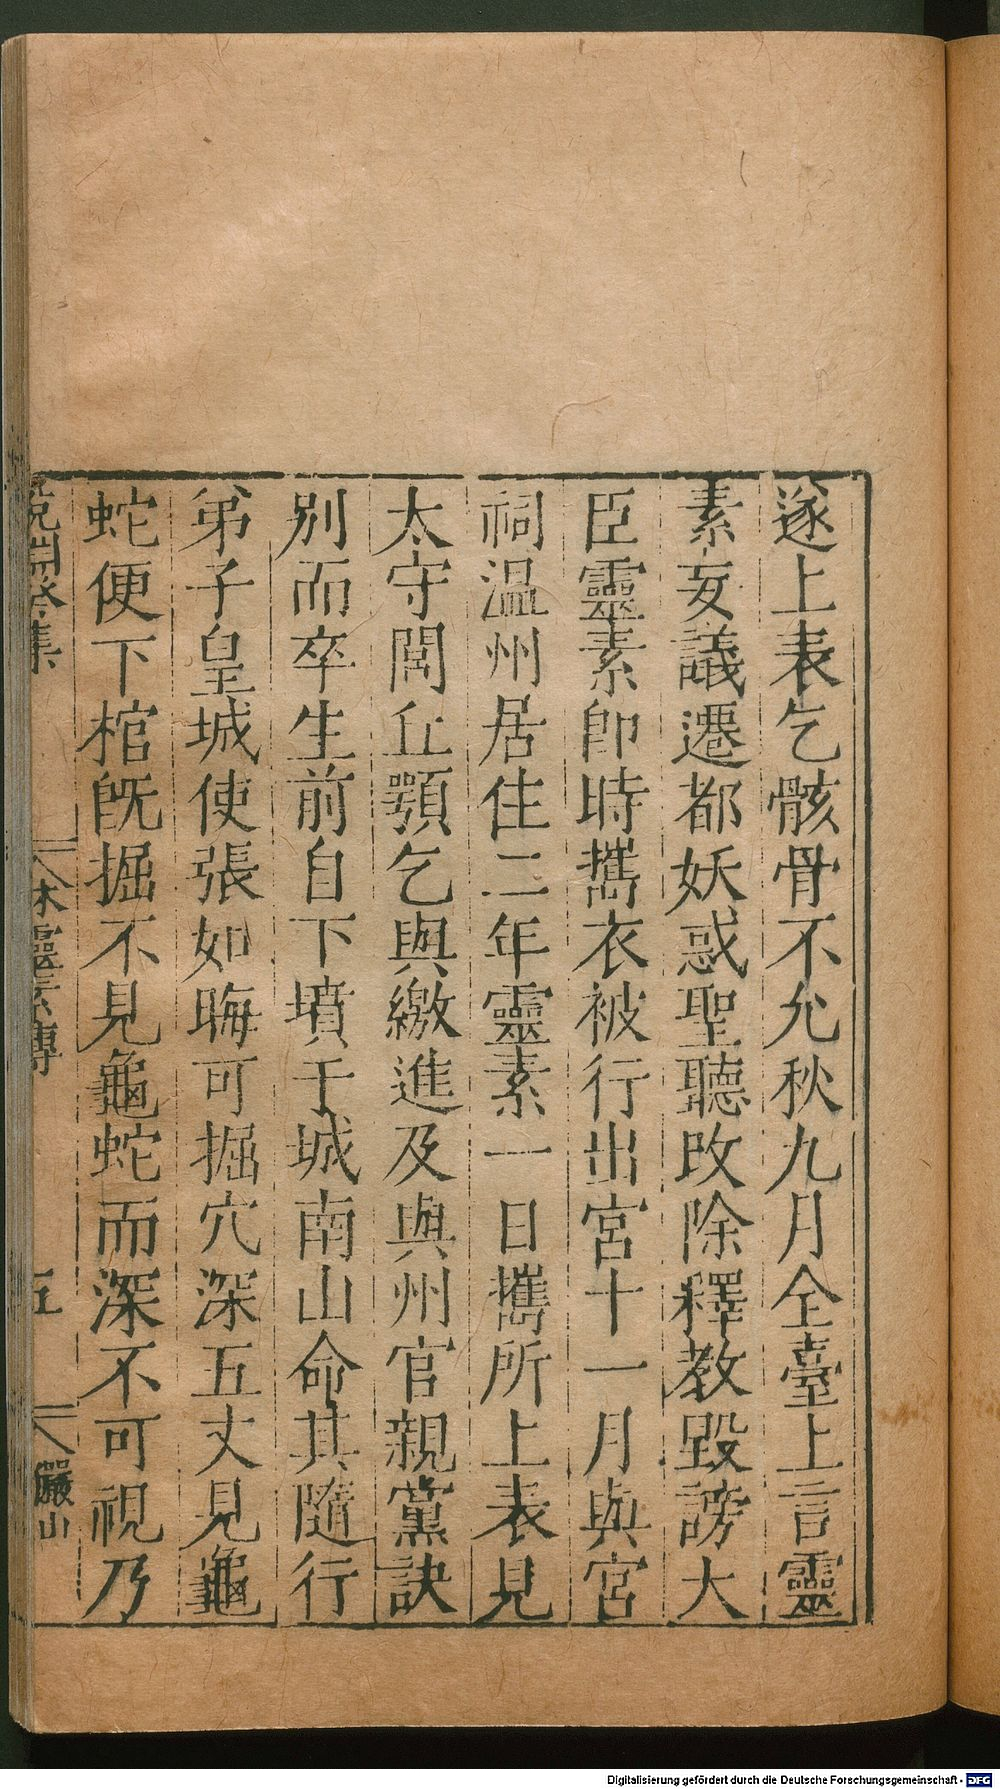 遂上表乞骸骨不允秋九月全臺上言靈
素妄議遷都妖惑聖聽改除釋教毀謗大
臣靈素即時攜衣被行出宮十一月與宮
祠溫州居住二年靈素一日攜所上表見
太守閭丘顎乞與繳進及與州官親黨訣
別而卒生前自下墳于城南山命其隨行
弟子皇城使張如晦可掘穴深五丈見龜
蛇便下棺旣掘不見龜蛇而深不可視乃
林靈素傳
五
巖山
Digitalisierung gefördert durch die Deutsche Forschungsgemeinschaft - DFG